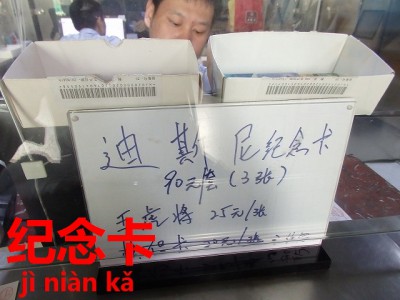 迪斯尼纪念卡
90元/套(3张)
五虎将 25元/张
20元/张
纪念卡
jì niàn kǎ